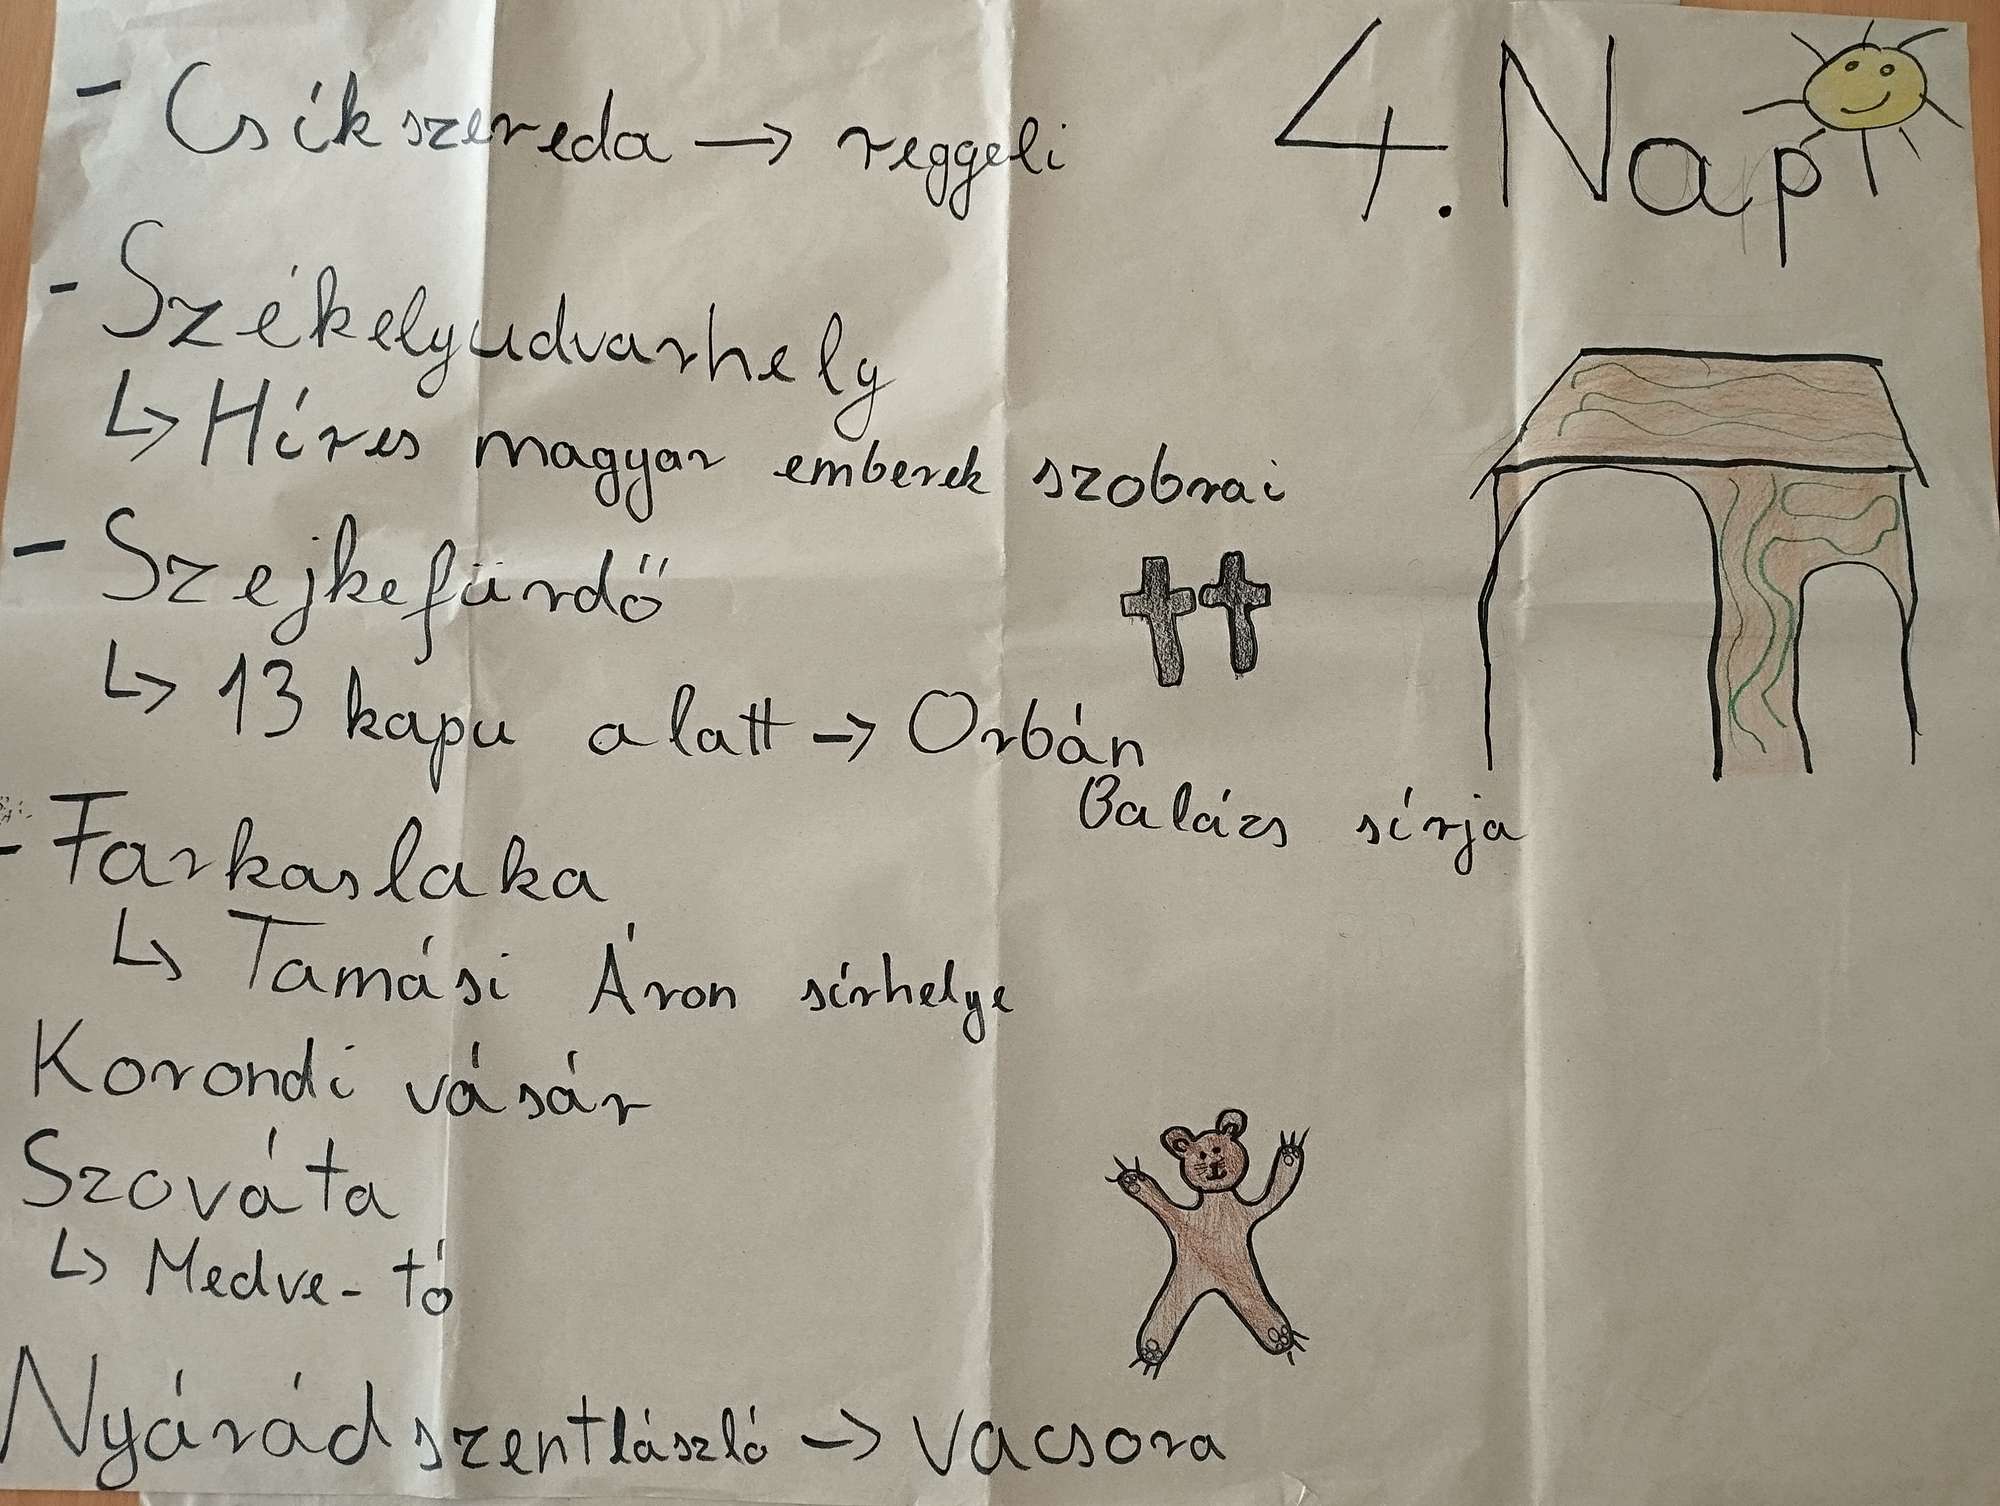 4. Nap
- Csíkszereda → reggeli
- Székelyudvarhely
↳ Híres magyar emberek szobrai
- Szejkefürdő
↳ 13 kapu alatt → Orbán
Balázs sírja
- Farkaslaka
↳ Tamási Áron sírhelye
Korondi vásár
Szováta
↳ Medve-tó
Nyárádszentlászló → vacsora